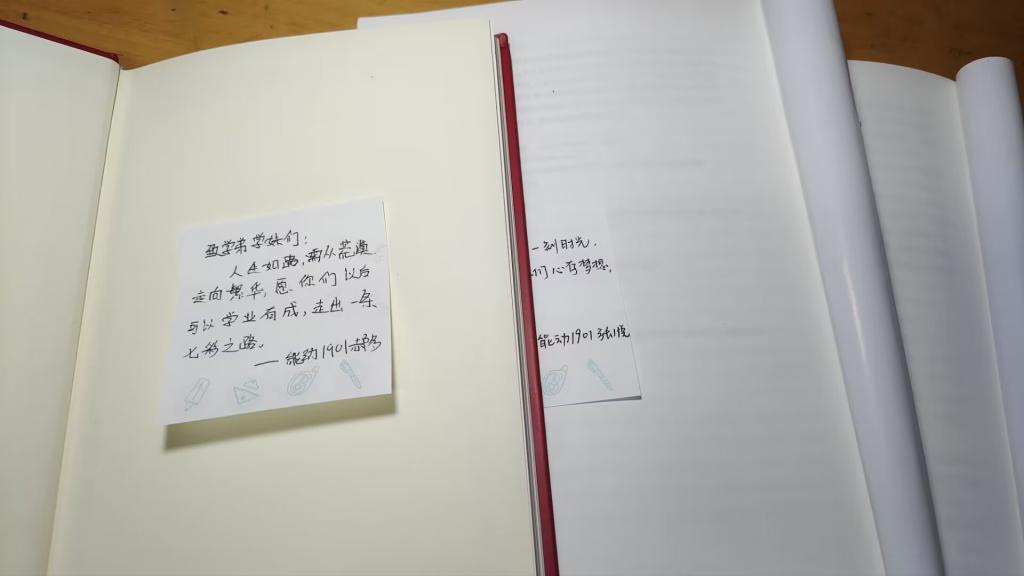 致学弟学妹们:
人生如路,需从荒漠
走向繁华,愿你们以后
可以学业有成,走出一条
七彩之路。
——能动1901
一刻时光.
们心有梦想,
能动1901 张